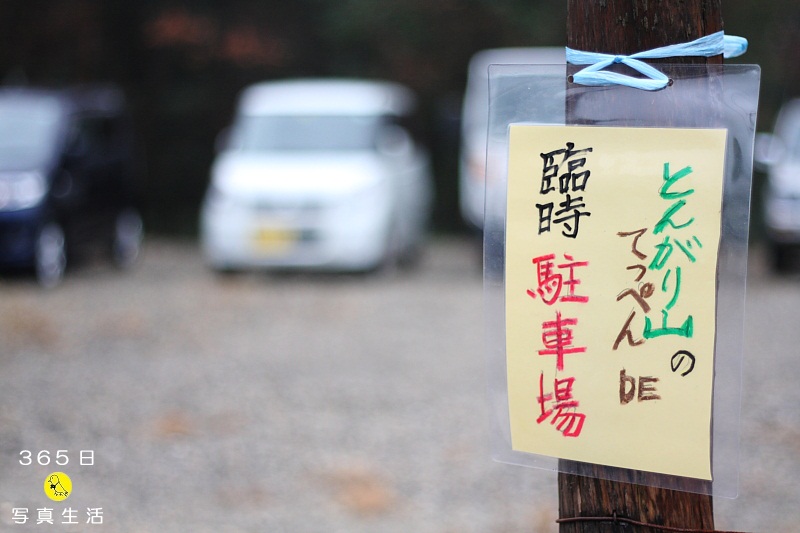 とんがり山の
てっぺんDE
臨時駐車場
365日
写真生活